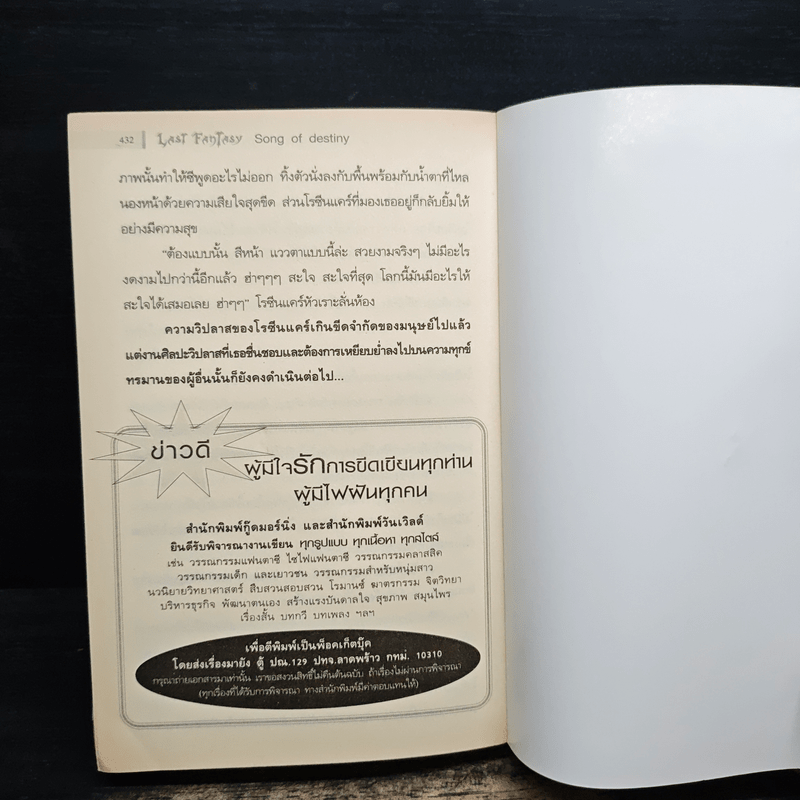 432 Last Fantasy Song of destiny
ภาพนั้นทำให้ซีพูดอะไรไม่ออก ทิ้งตัวนั่งลงกับพื้นพร้อมกับน้ำตาที่ไหล
นองหน้าด้วยความเสียใจสุดขีด ส่วนโรซีนแคร์ที่มองเธออยู่ก็กลับยิ้มให้
อย่างมีความสุข
"ต้องแบบนั้น สีหน้า แววตาแบบนี้ล่ะ สวยงามจริงๆ ไม่มีอะไร
งดงามไปกว่านี้อีกแล้ว ฮ่าๆๆๆ สะใจ สะใจที่สุด โลกนี้มันมีอะไรให้
สะใจได้เสมอเลย ฮ่าๆๆ" โรซีนแคร์หัวเราะลั่นห้อง
ความวิปลาสของโรซีนแคร์เกินขีดจำกัดของมนุษย์ไปแล้ว
แต่งานศิลปะวิปลาสที่เธอชื่นชอบและต้องการเหยียบย่ำลงไปบนความทุกข์
ทรมานของผู้อื่นนั้นก็ยังคงดำเนินต่อไป...
ข่าวดี
ผู้มีใจรักการขีดเขียนทุกท่าน
ผู้มีไฟฝันทุกคน
สำนักพิมพ์กู๊ดมอร์นิ่ง และสำนักพิมพ์วันเวิลด์
ยินดีรับพิจารณางานเขียน ทุกรูปแบบ ทุกเนื้อหา ทุกสไตล์
เช่น วรรณกรรมแฟนตาซี ไซไฟแฟนตาซี วรรณกรรมคลาสสิค
วรรณกรรมเด็ก และเยาวชน วรรณกรรมสำหรับหนุ่มสาว
นวนิยายวิทยาศาสตร์ สืบสวนสอบสวน โรมานซ์ ฆาตกรรม จิตวิทยา
บริหารธุรกิจ พัฒนาตนเอง สร้างแรงบันดาลใจ สุขภาพ สมุนไพร
เรื่องสั้น บทกวี บทเพลง ฯลฯ
เพื่อตีพิมพ์เป็นพ็อคเก็ตบุ๊ค
โดยส่งเรื่องมายัง ตู้ ปณ.129 ปทจ.ลาดพร้าว กทม. 10310
กรุณาถ่ายเอกสารมาเท่านั้น เราขอสงวนสิทธิ์ไม่คืนต้นฉบับ ถ้าเรื่องไม่ผ่านการพิจารณา
(ทุกเรื่องที่ได้รับการพิจารณา ทางสำนักพิมพ์มีค่าตอบแทนให้)